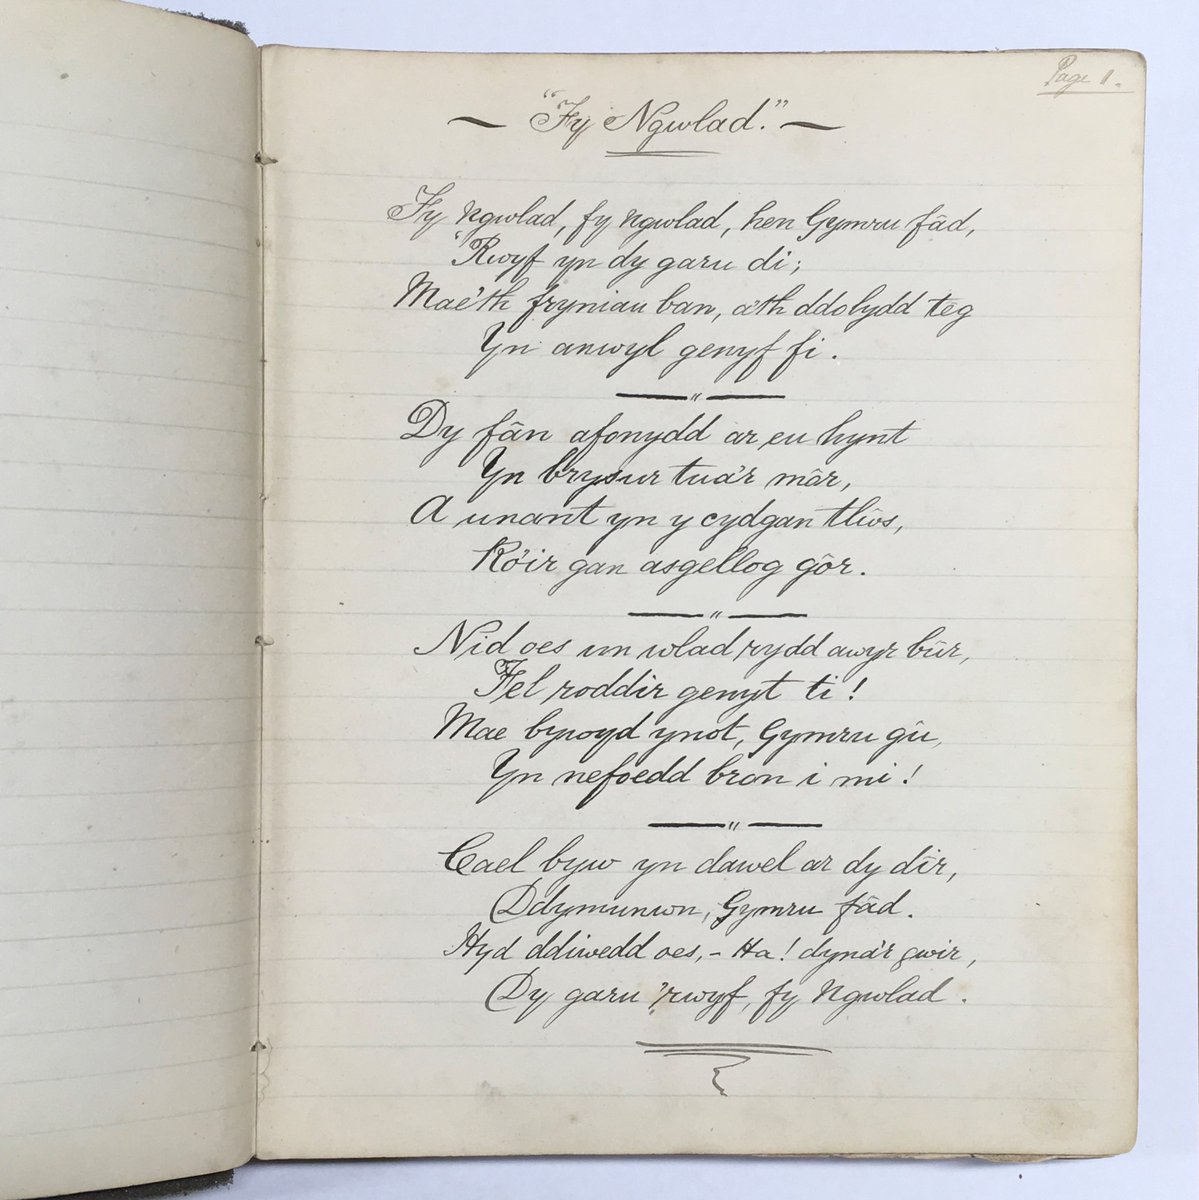 Page 1.
"Fy Ngwlad."
Fy Ngwlad, fy ngwlad, hen Gymru fâd,
'Rwyf yn dy garu di;
Mae'th fryniau ban, a'th ddolydd teg
Yn anwyl genyf fi.
Dy fân afonydd ar eu hynt
Yn brysur tua'r môr,
A unant yn y cydgan tlws,
Ro'ir gan asgellog gôr.
Nid oes un wlad rydd awyr bûr,
Fel roddir genyt ti!
Mae bywyd ynot, Gymru gu,
Yn nefoedd bron i mi!
Cael byw yn dawel ar dy dir,
Ddymunwn, Gymru fâd.
Hyd ddiwedd oes, - Ha! dyna'r gwir,
Dy garu 'rwyf, fy Ngwlad.